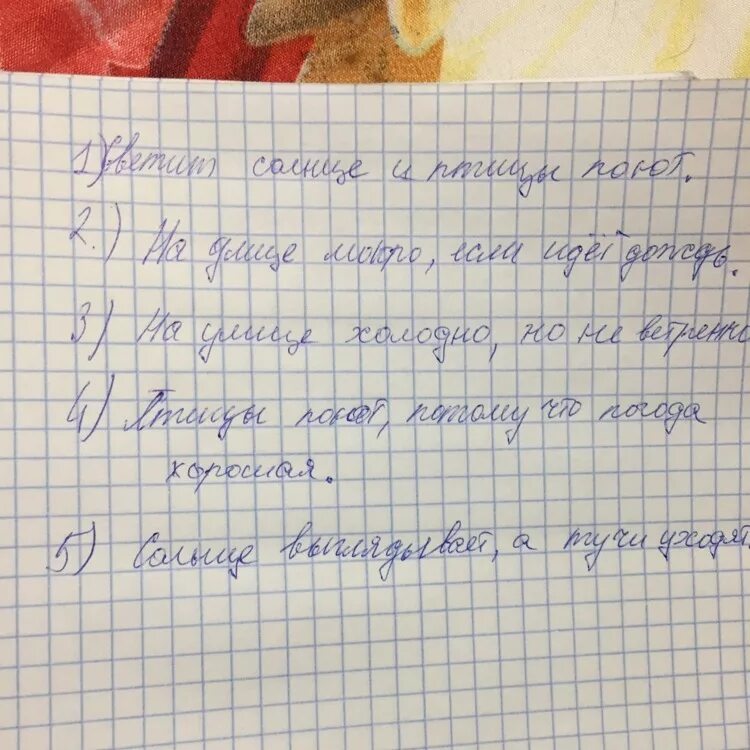 1) Светит солнце и птицы поют.
2.) На улице мокро, если идёт дождь.
3) На улице холодно, но не ветренно
4) Птицы поют, потому что погода
хорошая.
5) Солнце выглядывает, а тучи уходят.